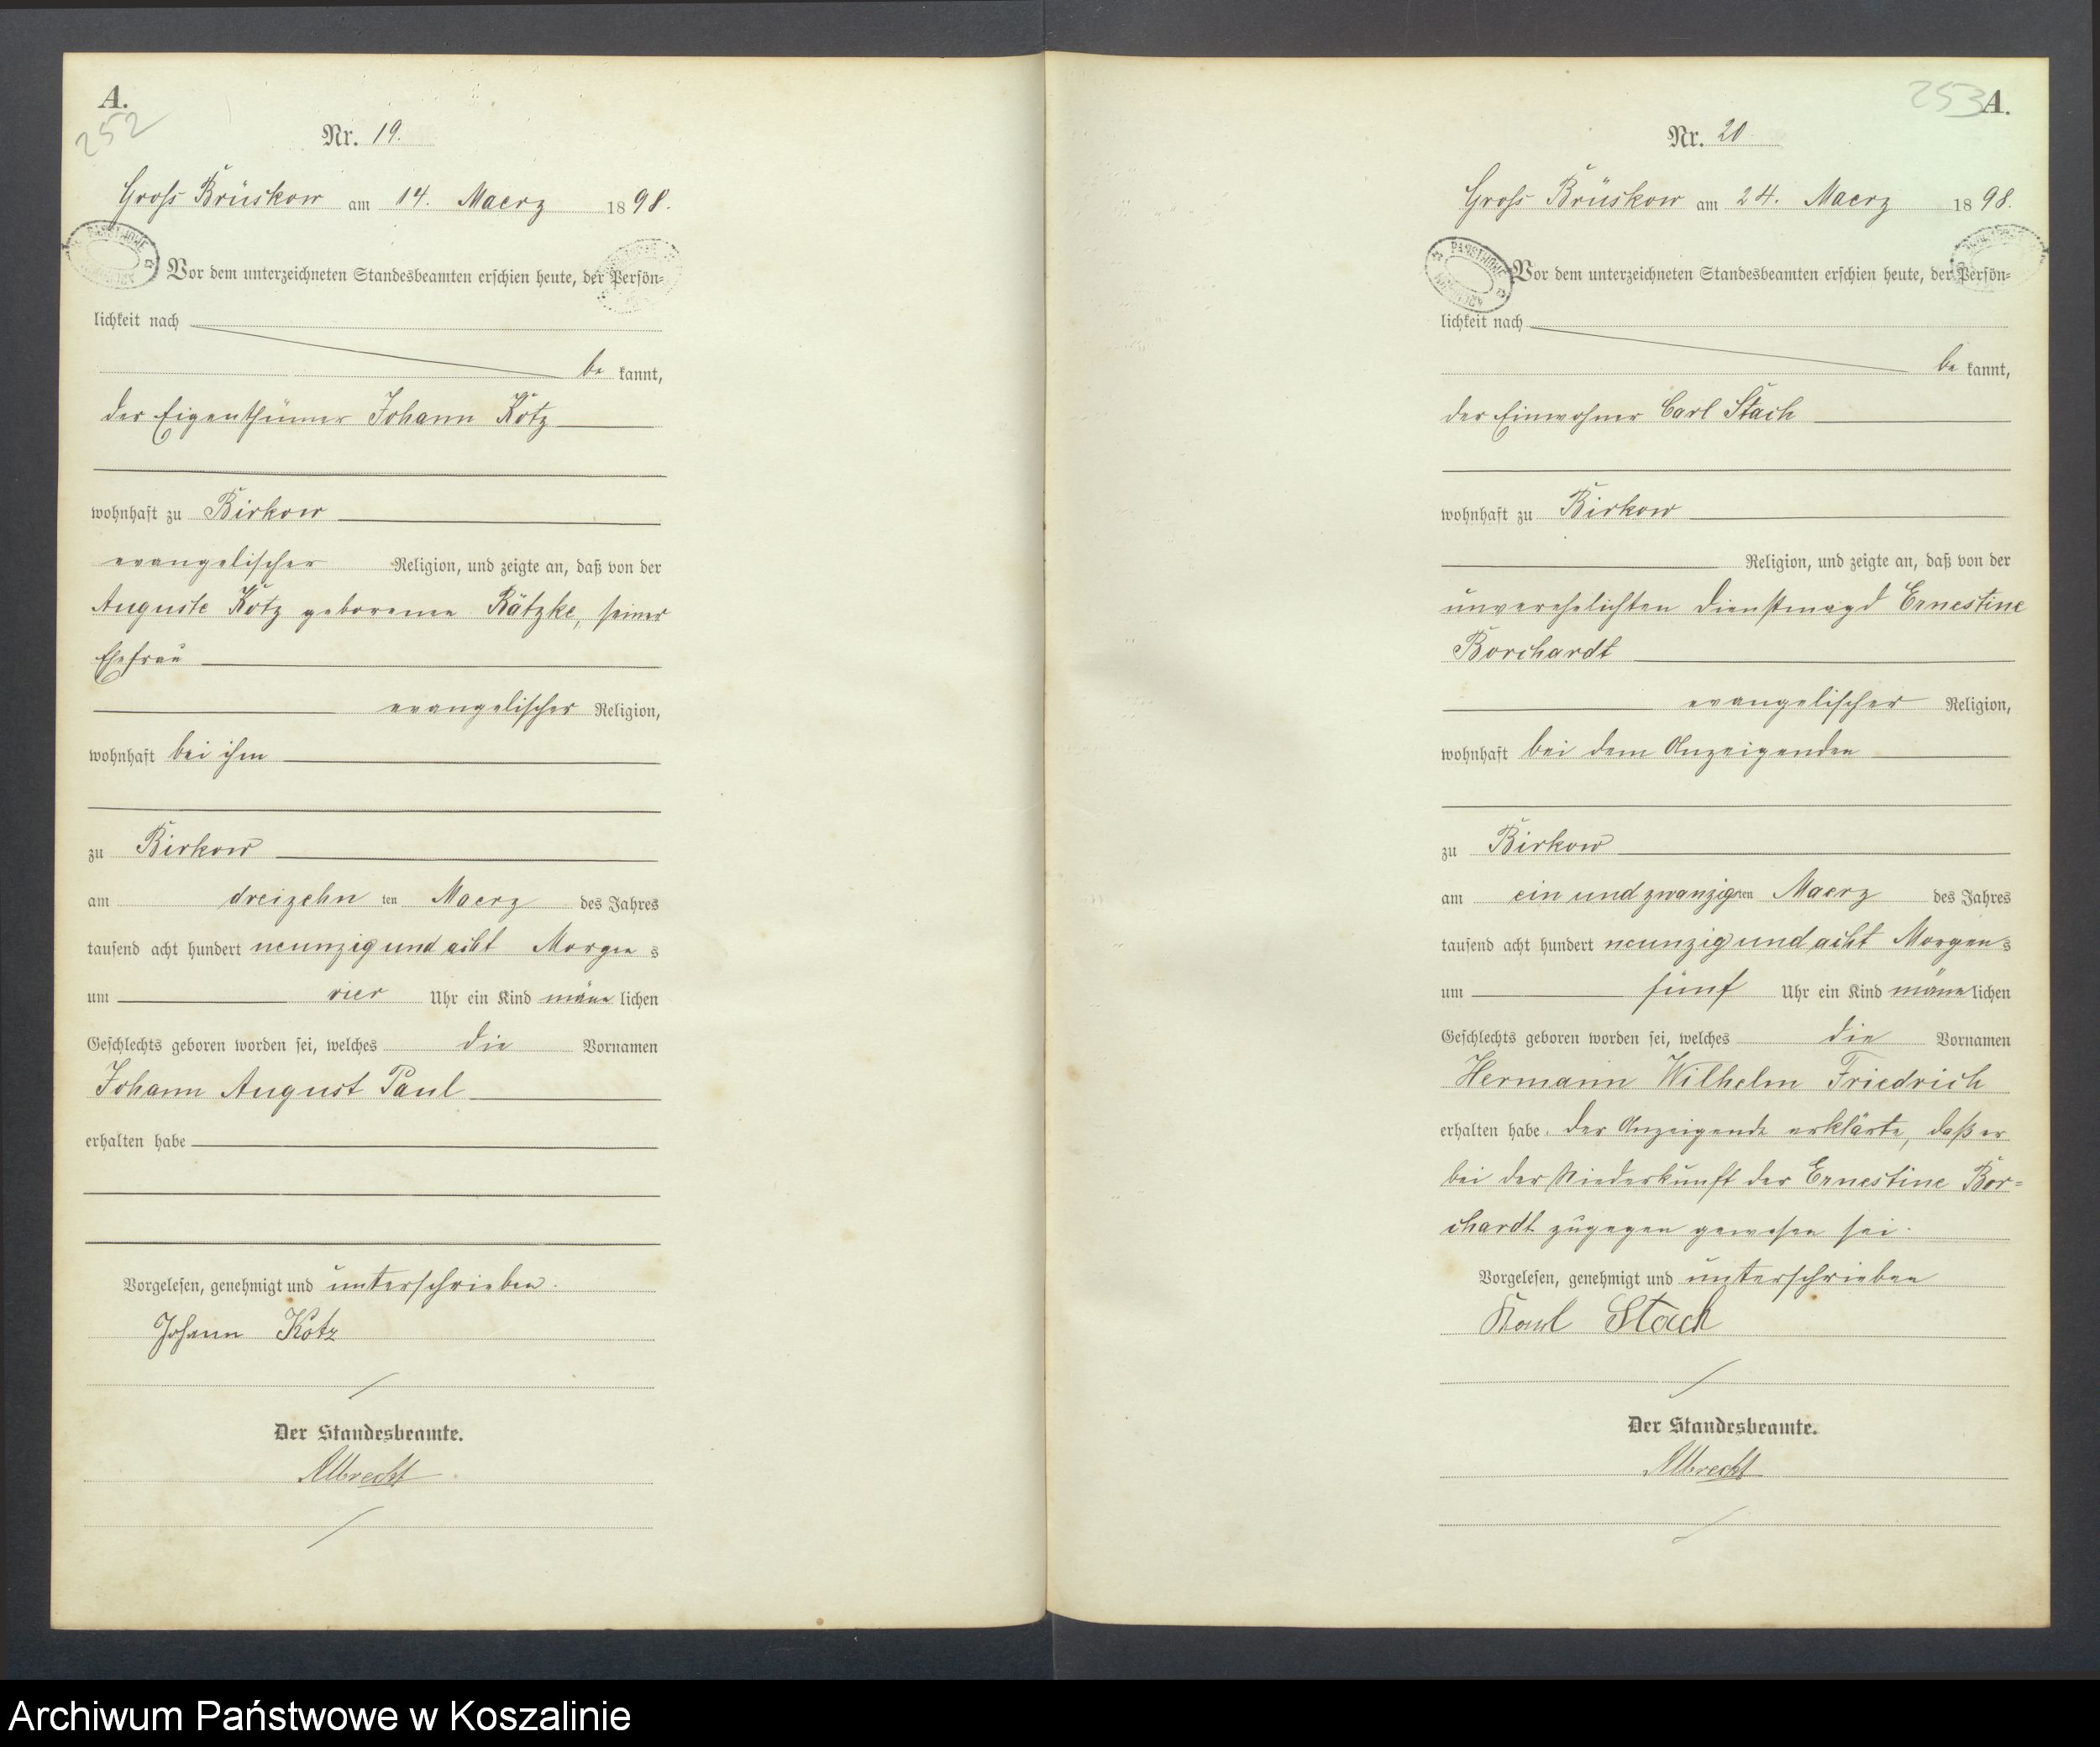 A.
252
Nr. 19.
Groß Brüskow am 14. Maerz 1898.
Vor dem unterzeichneten Standesbeamten erschien heute, der Persön-
lichkeit nach
be kannt,
der Eigenthümer Johann Kotz
wohnhaft zu Birkow
evangelischer Religion, und zeigte an, daß von der
Auguste Kotz geborenen Rätzke, seiner
Ehefrau
evangelischer Religion,
wohnhaft bei ihm
zu Birkow
am dreizehn ten Maerz des Jahres
tausend acht hundert neunzig und acht Morgens
um vier Uhr ein Kind männlichen
Geschlechts geboren worden sei, welches die Vornamen
Johann August Paul
erhalten habe
Vorgelesen, genehmigt und unterschrieben.
Johann Kotz
Der Standesbeamte.
Albrecht
253 A.
Nr. 20
Groß Brüskow am 24. Maerz 1898.
PAŃSTWOWE
Vor dem unterzeichneten Standesbeamten erschien heute, der Persön-
lichkeit nach
be kannt,
der Einwohner Carl Stach
wohnhaft zu Birkow
Religion, und zeigte an, daß von der
unverehelichten Dienstmagd Ernestine
Borchardt
evangelischer Religion,
wohnhaft bei dem Anzeigenden
zu Birkow
am ein und zwanzigsten Maerz des Jahres
tausend acht hundert neunzig und acht Morgens
um fünf Uhr ein Kind männlichen
Geschlechts geboren worden sei, welches die Vornamen
Hermann Wilhelm Friedrich
erhalten habe. Der Anzeigende erklärte, daß er
bei der Niederkunft der Ernestine Bor=
chardt zugegen gewesen sei.
Vorgelesen, genehmigt und unterschrieben
Karl Stach
Der Standesbeamte.
Albrecht
Archiwum Państwowe w Koszalinie